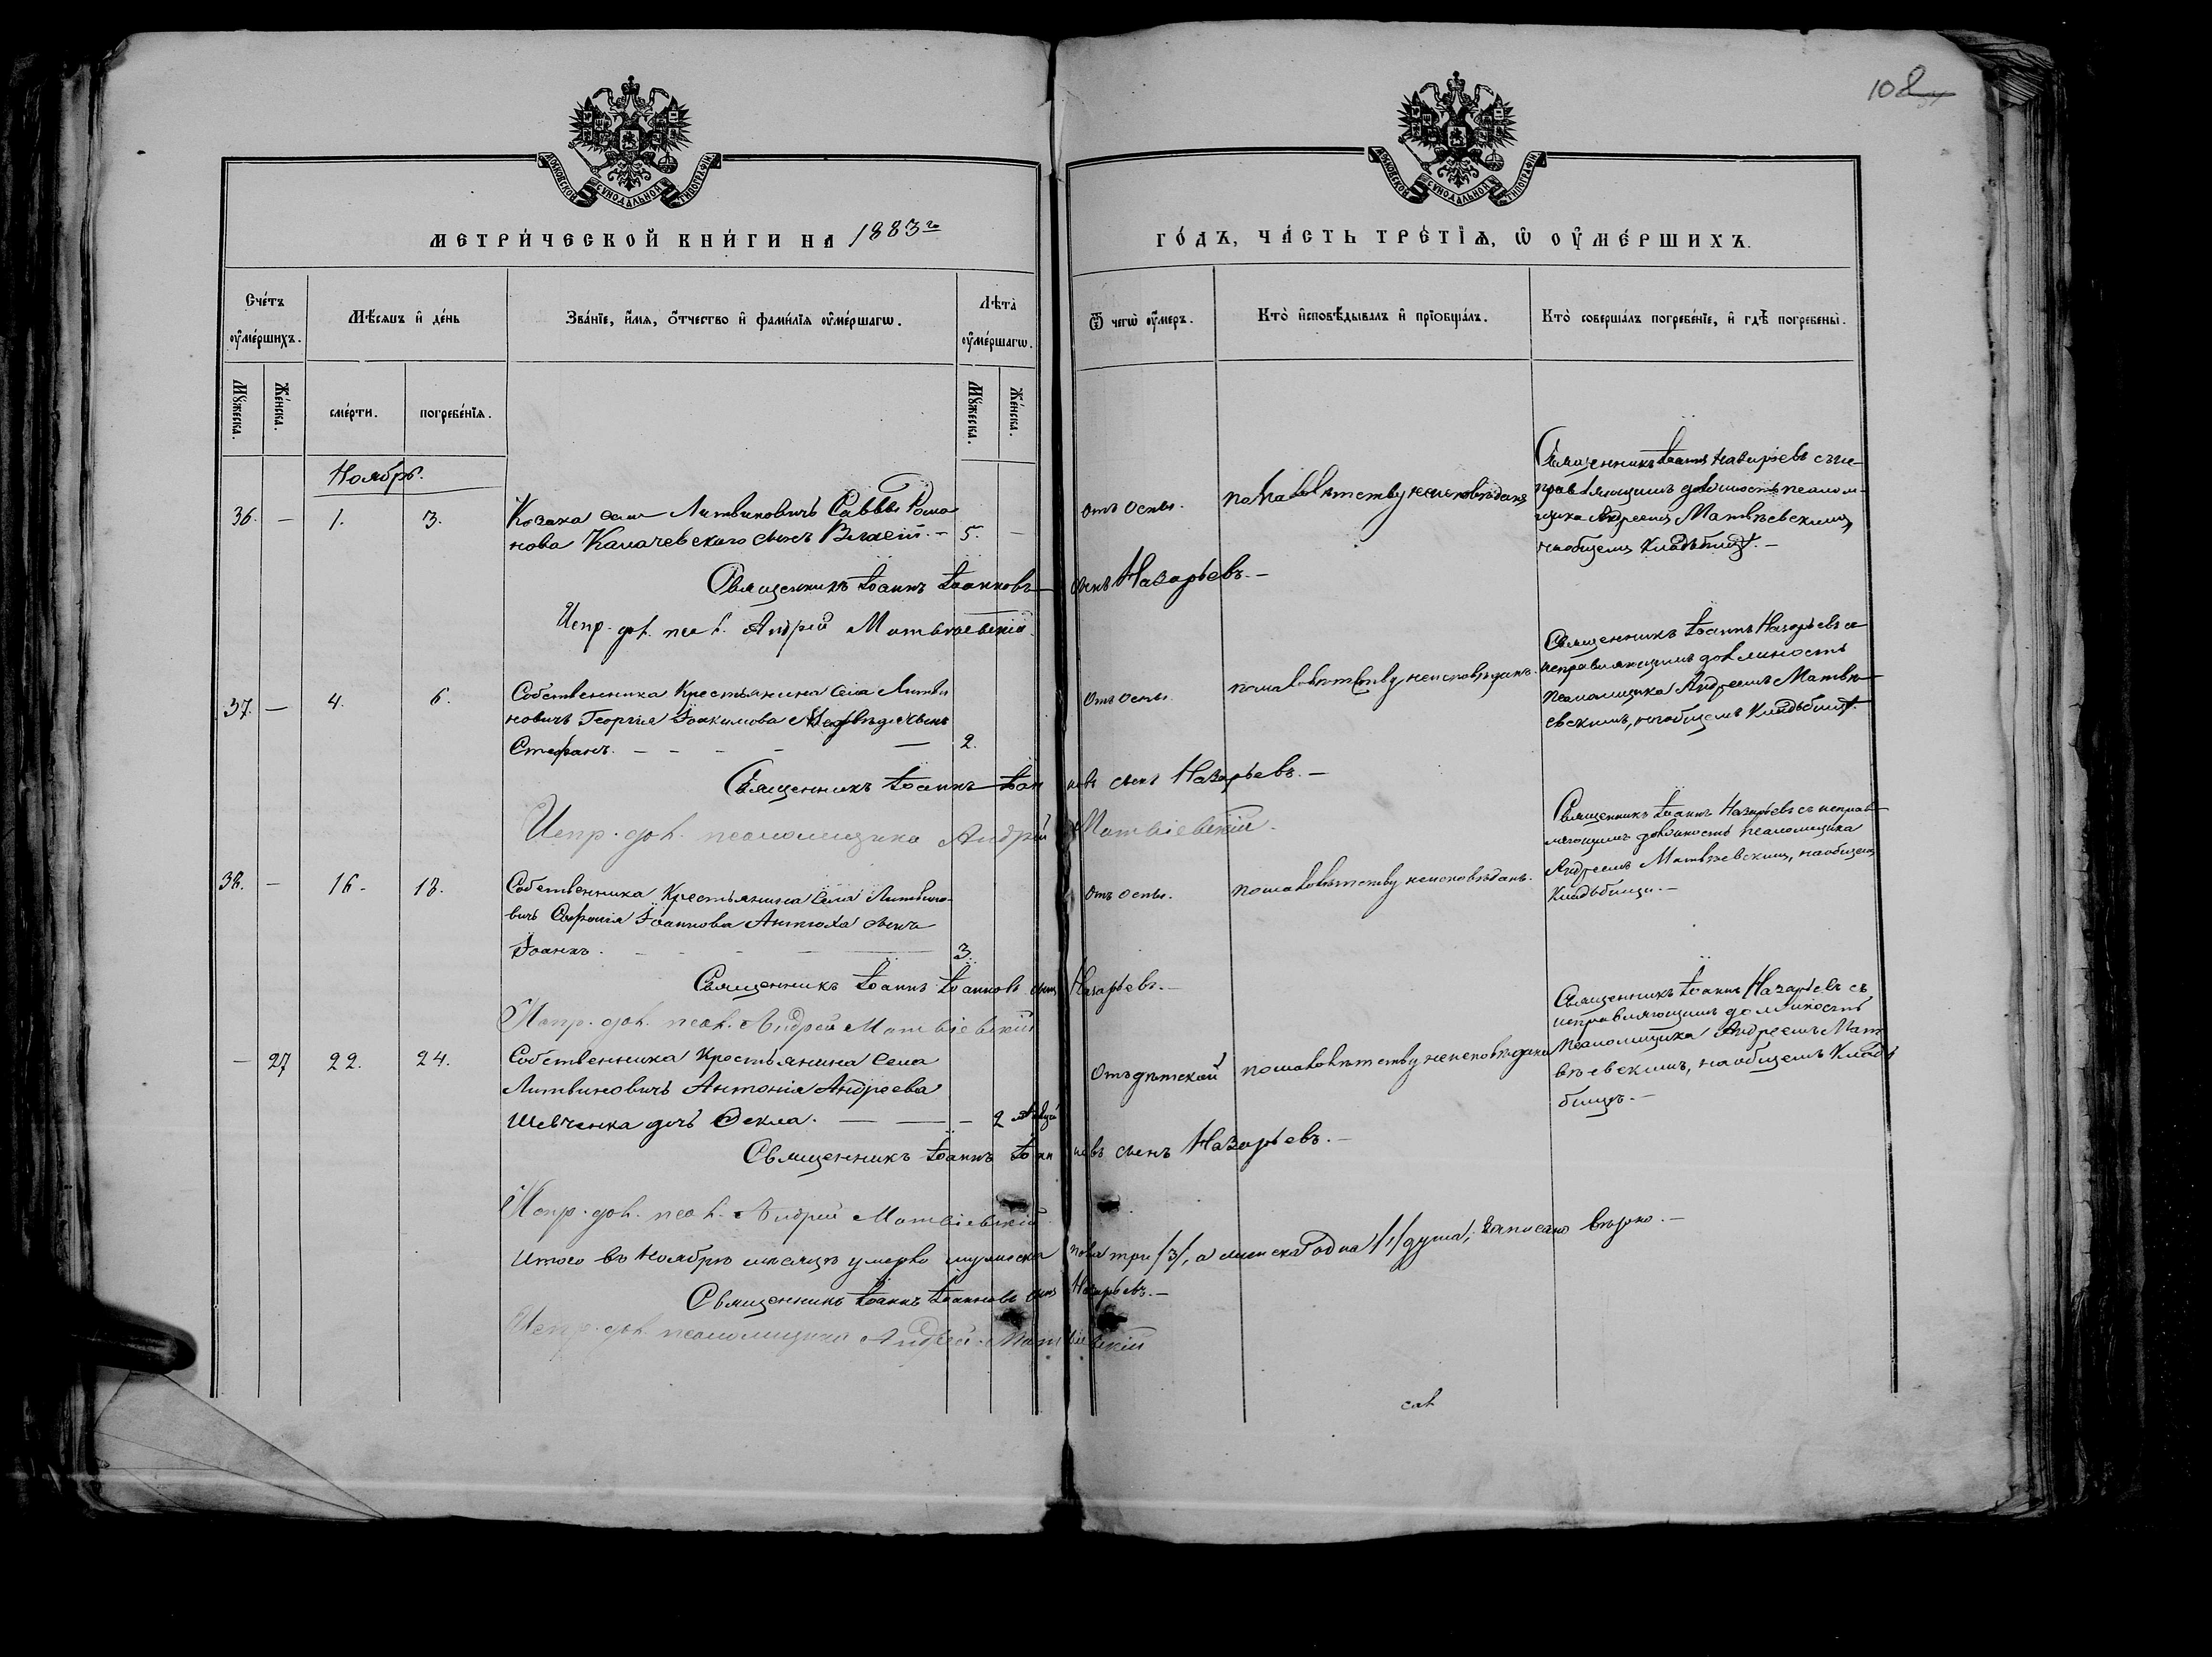 108
МОСКОВСКОЙ СѴНОДАЛЬНОЙ ТИПОГРАФІИ
МОСКОВСКОЙ СѴНОДАЛЬНОЙ ТИПОГРАФІИ
МЕТРИ́ЧЕСКОЙ КНИ́ГИ НА 1883го
ГО́ДЪ, ЧА́СТЬ ТРЕ́ТІѦ, Ѡ ОУ҆МЕ́РШИХЪ.
Сче́тъ оу҆ме́ршихъ.
Мѣ́сѧцъ и҆ де́нь
Зва́нїе, и҆́мѧ, ѻ҆́тчество и҆ фами́лїѧ оу҆ме́ршагѡ.
Лѣта̀ оу҆ме́ршагѡ.
Ѿ чегѡ̀ оу҆́меръ.
Кто̀ и҆сповѣ́дывалъ и҆ прїобща́лъ.
Кто̀ соверша́лъ погребе́нїе, и҆ гдѣ̀ погребены̀.
Мꙋ́жеска.
Же́нска.
сме́рти.
погребе́нїѧ.
Мꙋ́жеска.
Же́нска.
Ноябрь.
36. — 1. 3.
Козака села Литвиновичъ Саввы Рома
нова Калачевскаго сынъ Власій. — 5. —
отъ оспы.
по малолѣтству неисповѣданъ
Священникъ Іоаннъ Назарьевъ съ ис
правляющимъ должность псалом-
щика Андреемъ Матвѣевскимъ,
на общемъ кладбищѣ. —
Священникъ Іоаннъ Іоанновъ сынъ Назарьевъ. —
Испр. дол. псал. Андрей Матвіевскій.
37. — 4. 6.
Собственника Крестьянина села Литви
новичъ Георгія Іоакимова сынъ
Стефанъ. — 2.
Отъ оспы.
по малолѣтству неисповѣданъ.
Священникъ Іоаннъ Назарьевъ съ
исправляющимъ должность
псаломщика Андреемъ Матвѣ
евскимъ, на общемъ Кладбищѣ.
Священникъ Іоаннъ Іоан новъ сынъ Назарьевъ. —
Испр. дол. псаломщика Андрей Матвіевскій.
38. — 16. 18.
Собственника Крестьянина Села Литвино-
вичъ Софронія Іоаннова Антюха сынъ
Іоаннъ. — 3.
отъ оспы.
по малолѣтству неисповѣданъ.
Священникъ Іоаннъ Назарьевъ съ исправ
ляющимъ должность псаломщика
Андреемъ Матвѣевскимъ, на общемъ
Кладбищи. —
Священникъ Іоаннъ Іоанновъ сынъ Назарьевъ. —
Испр. дол. псал. Андрей Матвіевскій
— 27 22. 24.
Собственника Крестьянина Села
Литвиновичъ Антонія Андреева
Шевченка дочь Ѳекла. — 2
Отъ дѣтской
по малолѣтству неисповѣдана
Священникъ Іоаннъ Назарьевъ съ
исправляющимъ должность
псаломщика Андреемъ Мат
вѣевскимъ, на общемъ Клад
бищѣ. —
Священникъ Іоаннъ Іоан новъ сынъ Назарьевъ. —
Испр. дол. псал. Андрей Матвіевскій
Итого въ Ноябрѣ мѣсяцѣ умерло мужеска пола три /3/, а женска одна /1/ душа; записано вѣрно. —
Священникъ Іоаннъ Іоанновъ сынъ Назарьевъ. —
Испр. дол. псаломщика Андрей Матвіевскій